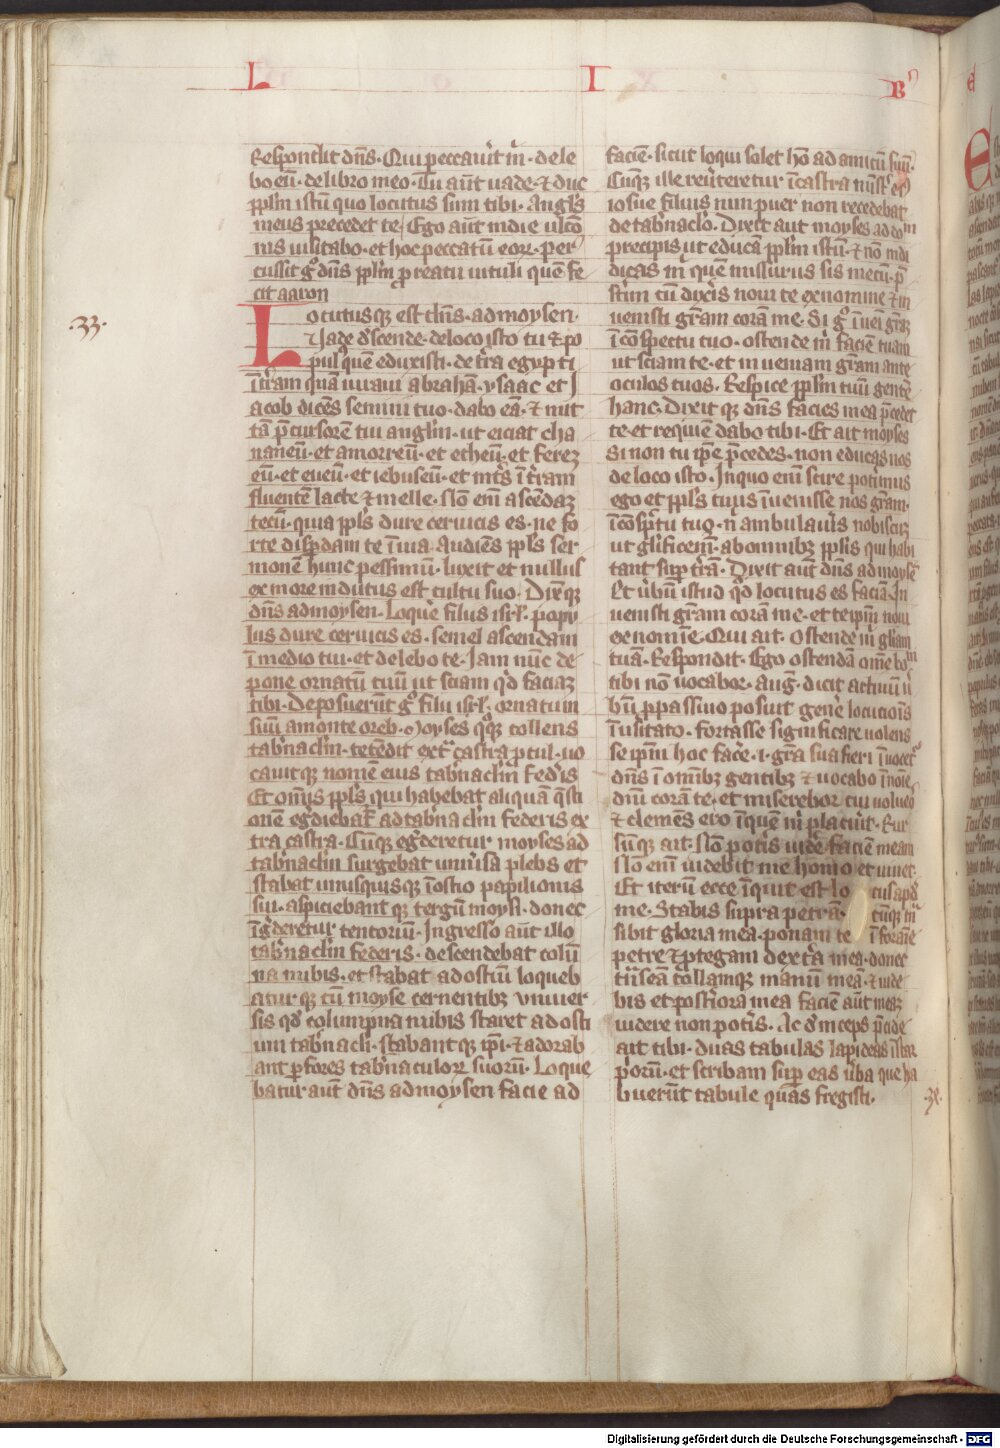 L I B
Respondit dn̄s · Qui peccau̾it m̄ · dele
bo eū · de libro meo · Tu aūt uade · ⁊ duc
pp̄lm istū quo locutus sum tibi · Angl̄s
meus precedet te / Ego aūt in die ulcō
nis uisitabo · et hoc peccatū eoꝝ · per
cussit gͦ dn̄s pp̄lm ꝓ reatu uituli quē fe
cit aaron
·33·
Locutusqꝫ est dn̄s · ad moysen ·
Uade d̾scende · de loco isto tu ⁊ po
pul᷒ quē eduxisti · de t̾ra egypti
ī t̾ram quā iuraui abrahā · ysaac et J
acob dicēs semini tuo · dabo eā · ⁊ mit
tā p̄cursorē tui angl̄m · ut eiciat cha
naneū · et amorreū · et etheū · et ferez
eū · et eueū · et iebuseū · et int̾s ī t̾ram
fluentē lacte ⁊ melle · Nō em̄ ascēdaꝫ
tecū · quia pp̄ls dure ceruicis es · ne fo
rte disp̱dam te ī uia · Audiēs pp̄ls ser
monē hunc pessimū · luxit et nullus
ex more indutus est cultu suo · Dix̄qꝫ
dn̄s ad moysen · Loq̾re filiis isrl̄ · popu
lus dure ceruicis es · semel ascendam
ī medio tui · et delebo te · Jam nūc de
pone ornatū tuū ut sciam qd̾ faciaꝫ
tibi · Deposuerūt gͦ filii isrl̄ · ornatum
suū a monte oreb · Moyses qͦqꝫ tollens
tab̾nacl̄m · tetēdit ext̾ castra ꝓcul · uo
cauitqꝫ nomē eius tab̾nacl̄m fed̾is
Et om̄is pp̄ls qui habebat aliquā q̄sti
onē eg̾diebat̾ ad tab̾nacl̄m federis ex
tra castra · Cūqꝫ eg̾deretur moyses ad
tab̾nacl̄m surgebat uniu̾sa plebs et
stabat unusquisqꝫ ī ostio papilionis
sui · aspiciebantqꝫ tergū moysi · donec
īg̾deretur tentoriū · Ingresso aūt illo
tab̾nacl̄m federis · descendebat colū
na nubis · et stabat ad ostiū loqueb
aturqꝫ cū moyse cernentibꝫ vniuer
sis qd̾ columpna nubis staret ad osti
um tab̾nacli · stabantqꝫ ip̄i · ⁊ adorab
ant p̱ fores tab̾naculoꝝ suorū · Loque
batur aūt dn̄s ad moysen facie ad
faciē · sicut loqui solet hō ad amicū suū ·
Cūqꝫ ille reu̾teretur ī castra
iosue filius nun puer non recedebat
de tab̾naclo · Dixit aut moyses ad dom̄
precipis ut educā pp̄lm istū · ⁊ nō indi
dicas m̄ quē missurus sis mecū · p̄
s̾tim cū dix̾is noui te ex nomine ⁊ in
uenisti gr̄am corā me · Si gͦ īueni gr̄aꝫ
ī cōspectu tuo · ostende m̄ faciē tuam
ut sciam te · et inueniam gr̄am ante
oculos tuos · Respice pp̄lm tuū gentē
hanc · Dixitqꝫ dn̄s facies mea p̄cedet
te · et requiē dabo tibi · Et ait moyses
Si non tu ip̄e p̄cedes · non educas nos
de loco isto · Jn quo em̄ scire pot̾imus
ego et pp̄ls tuus īuenisse nos gr̄am ·
ī cōsp̄ctu tuo · n̄ ambulau̾is nobiscuꝫ
ut gl̄ificem̾ · ab omnibꝫ pp̄lis qui habi
tant sup̱ t̾rā · Dixit aūt dn̄s ad moysē
Et u̾bū istud qd̾ locutus es faciā · In
uenisti gr̄am corā me · et teip̄m noui
ex nomīe · Qui ait · Ostende m̄ gl̄iam
tuā · Respondit · Ego ostendā om̄e bonū
tibi nō uocabor · Aug̾ · dicit actiuū u̾
bū ꝓ passiuo posuit gen̾e locutiōis
īusitato · fortasse significare uolens
seip̄m hoc fac̾e · i · gr̄a sua fieri ī uocet̾
dn̄s ī om̄ibꝫ gentibꝫ ⁊ uocabo ī noīe
dn̄i corā te · et miserebor cui uoluero
⁊ clemēs ero ī quem m̄ placu̾it · Rur
sūqꝫ ait · Nō pot̾is uid̾e faciē meam
Nō em̄ uidebit me homo et uiuet
Et iterū ecce īquit est locus apd̾
me · Stabis supra petrā · cūqꝫ tn̄
sibit gloria mea · ponam te ī foramīe
petre ⁊ ꝓtegam dext̾ra mea · donec
tn̄seā · Tollamqꝫ manū meā · ⁊ uide
bis et post̾iora mea faciē aūt meaꝫ
uidere non pot̾is · Ac d̾inceps p̄cide
ait tibi · duas tabulas lapideas īstar
p̾orū · et scribam sup̱ eas u̾ba que ha
buerūt tabule quas fregisti ·